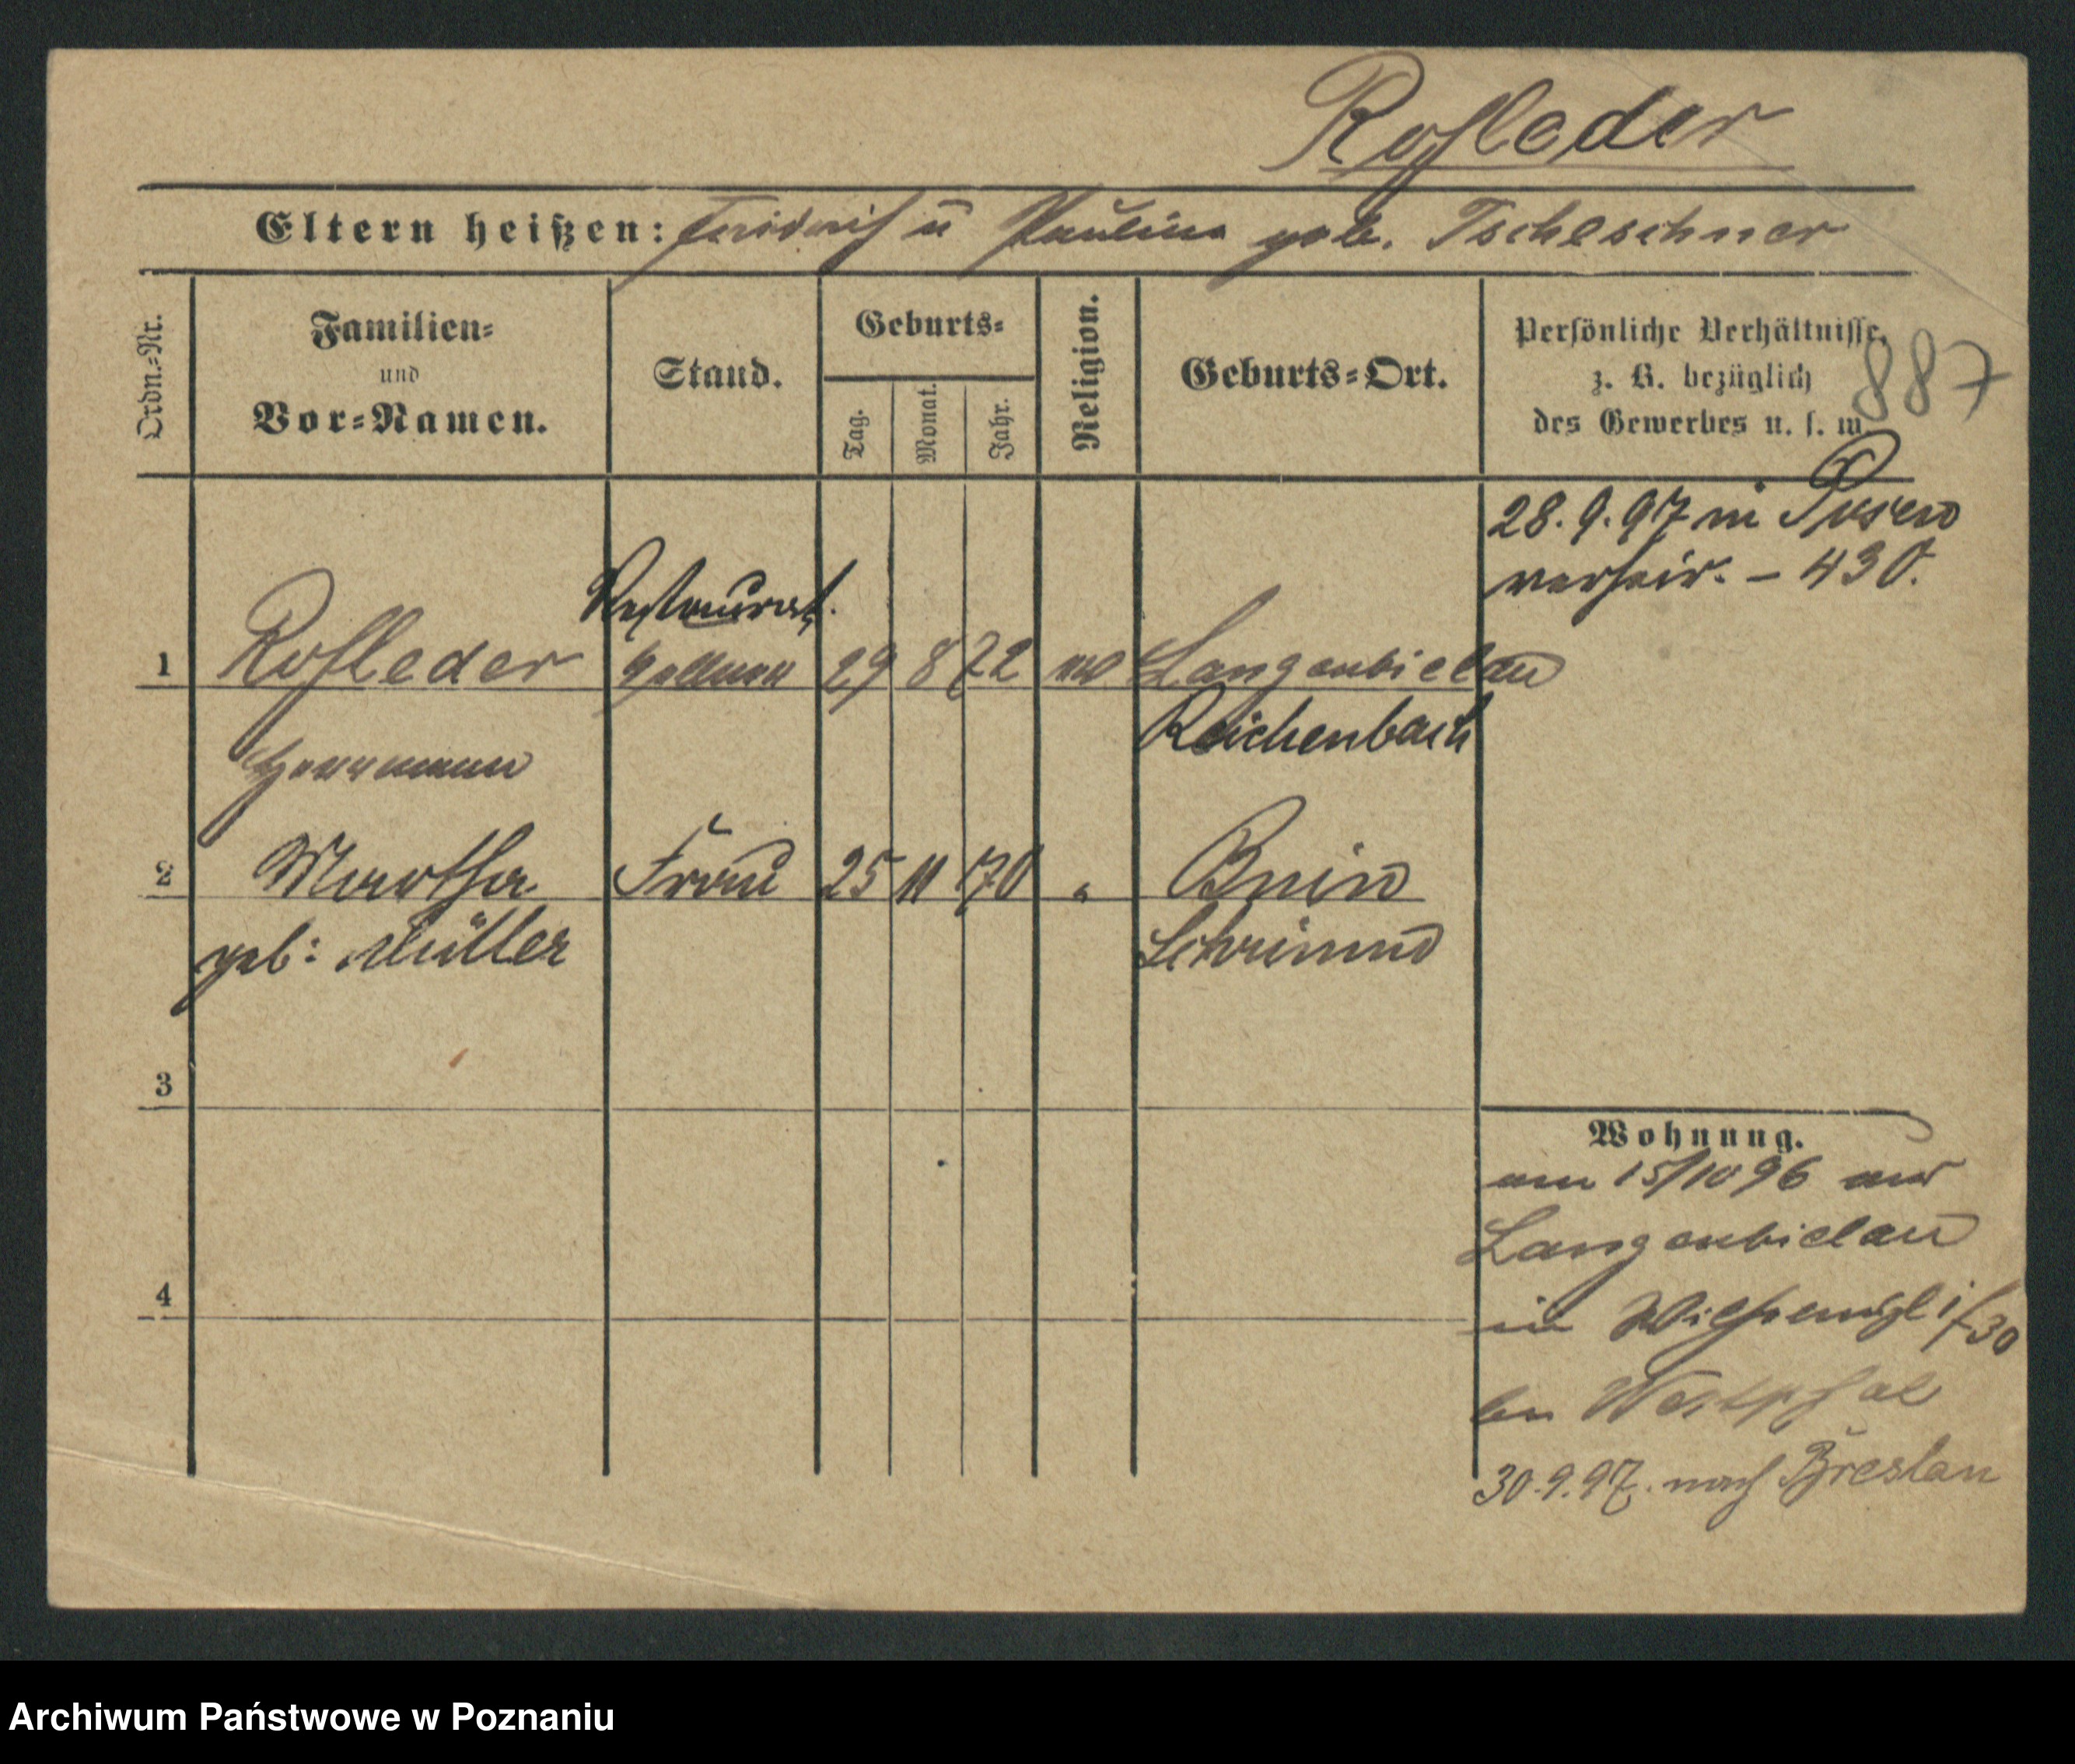 Rohleder
Eltern heißen: Friedrich u Pauline geb. Tscheschner
Ordn.=Nr.
Familien=
und
Vor=Namen.
Stand.
Geburts=
Tag.
Monat.
Jahr.
Religion.
Geburts=Ort.
Persönliche Verhältnisse,
z. B. bezüglich
des Gewerbes u. s. w.
887
28.9.97 in Posen
verheir. – 430.
Restaurat.
1 Rohleder Kellner 29 8 72 Langenbielau
Reichenbach
Herrmann
2 Martha Frau 25 11 70 " Bnin
geb: Müller Schrimm
3
Wohnung.
am 15/10 96 aus
Langenbielau
4
in 30
bei Westphal
30.9.97. nach Breslau
Archiwum Państwowe w Poznaniu